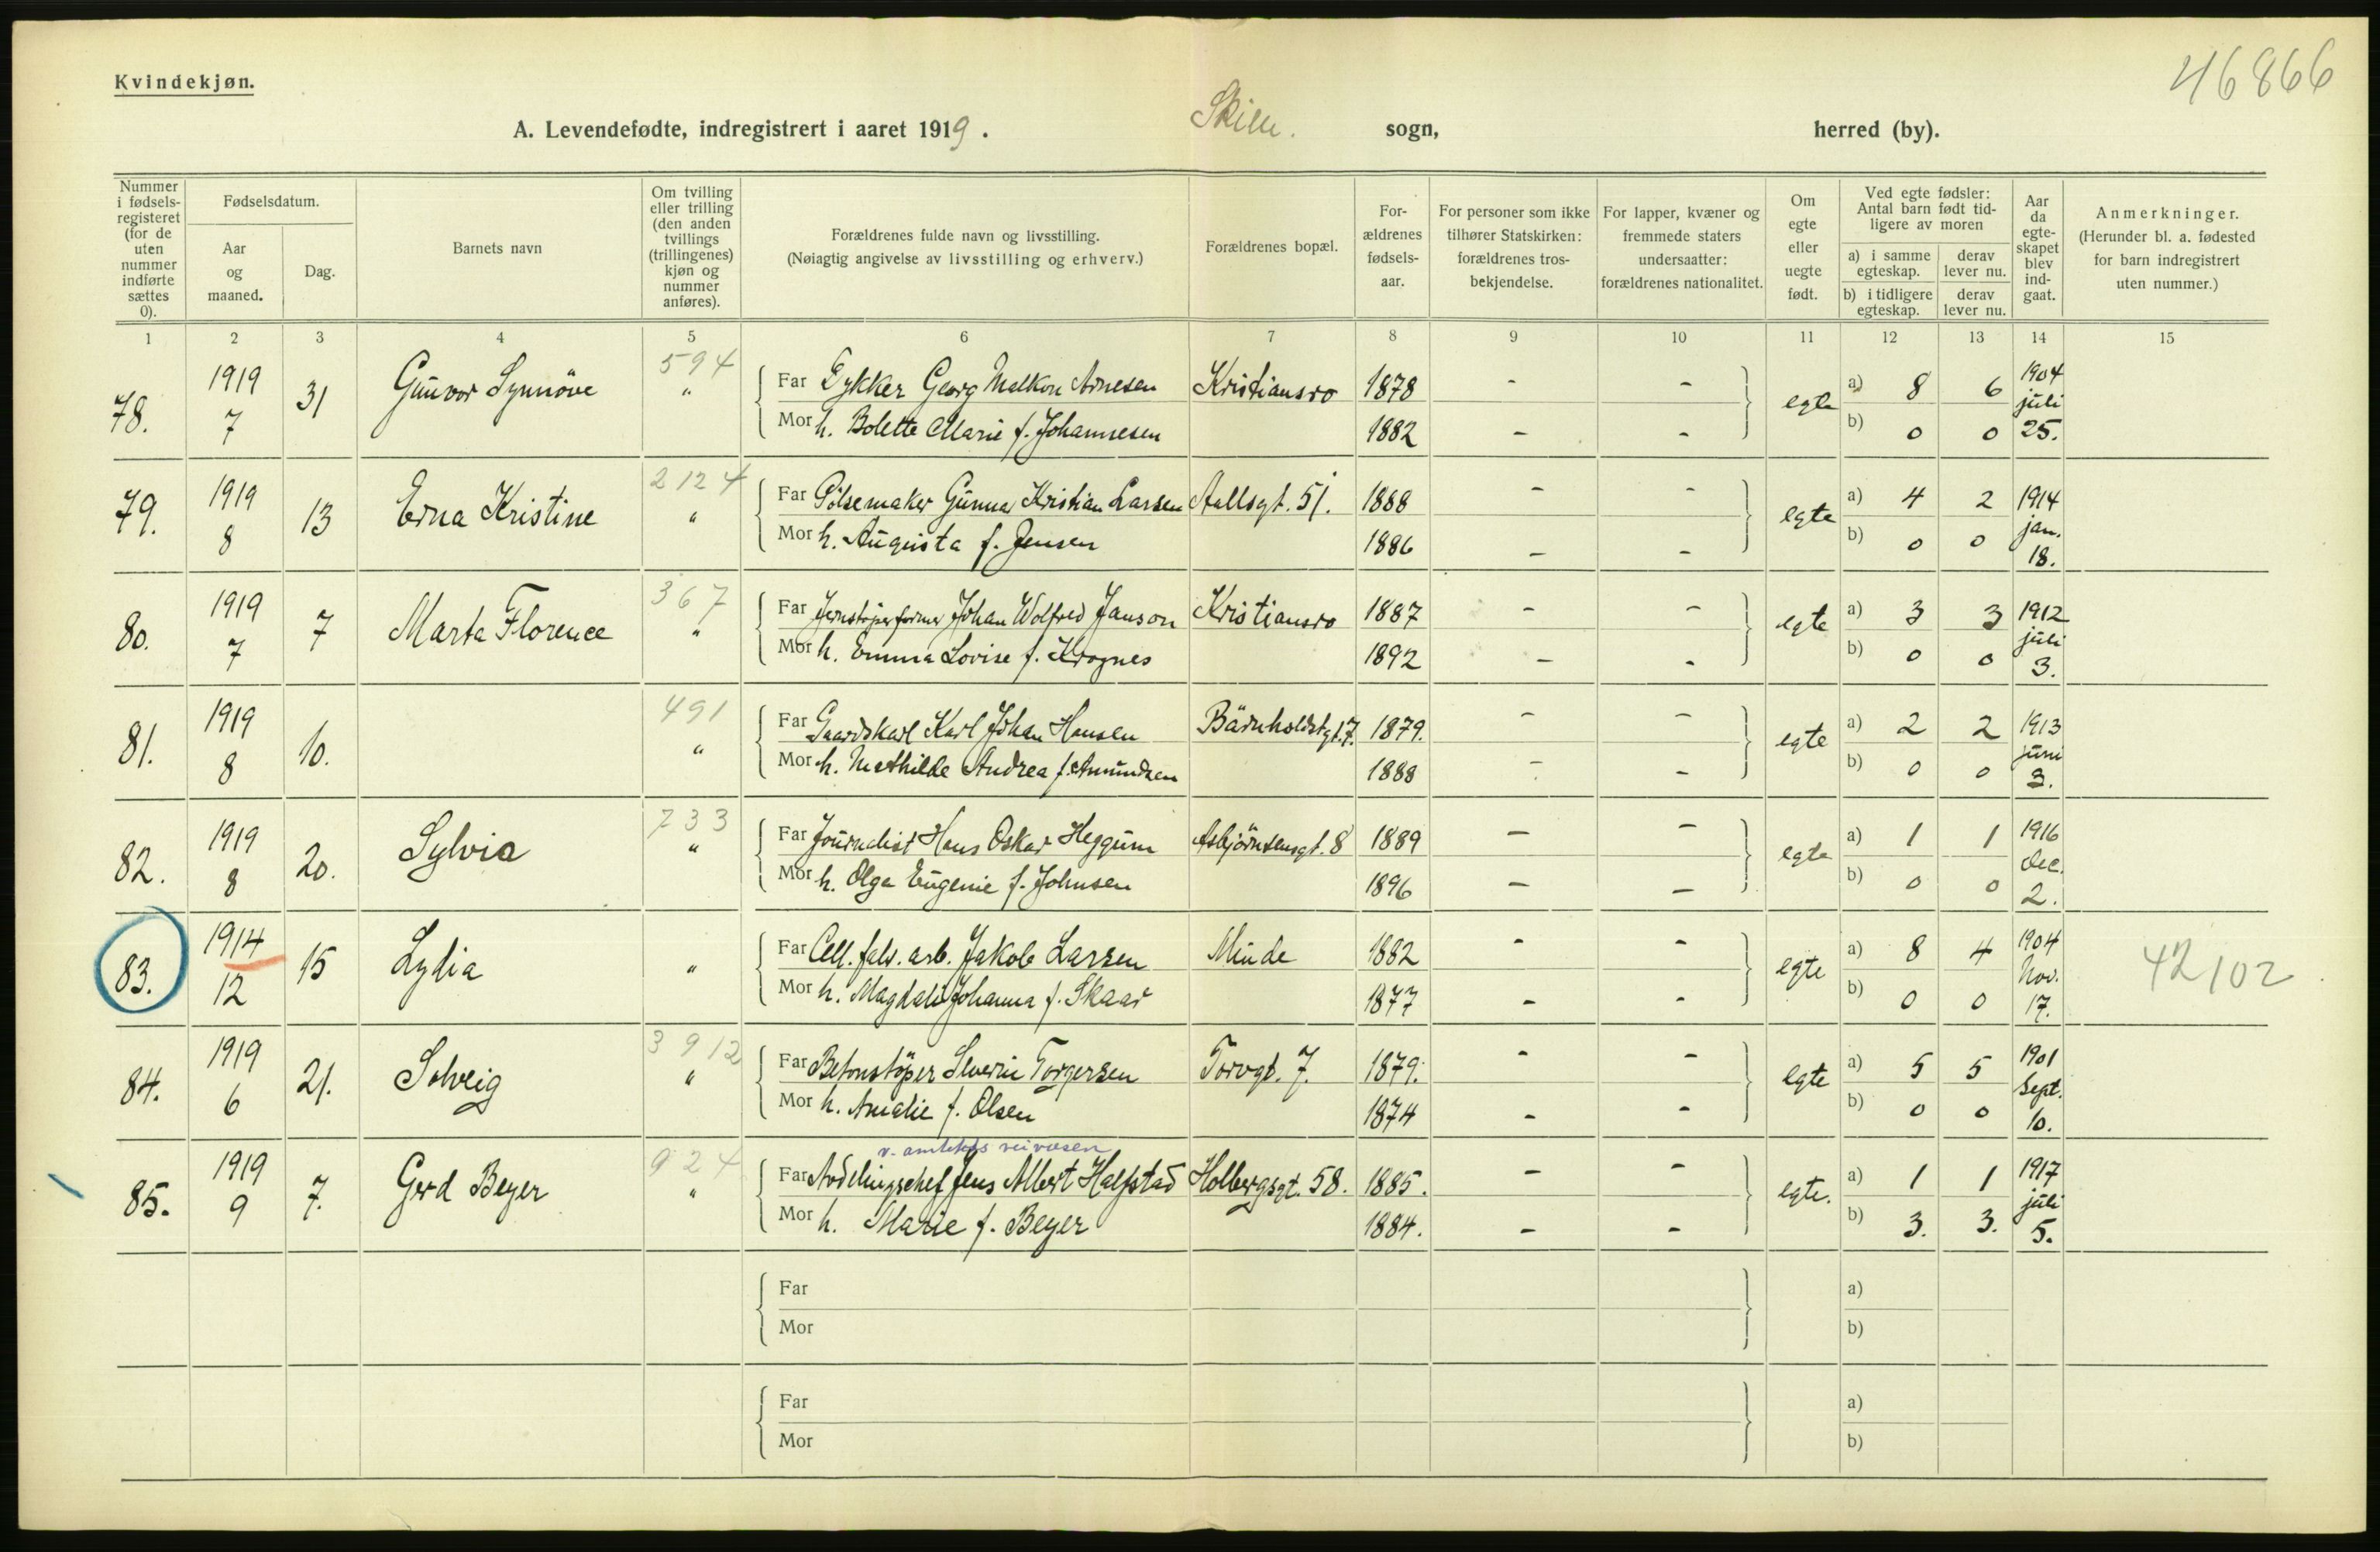 46866
Kvindekjøn.
A. Levendefødte, indregistrert i aaret 1919. Skien. sogn, herred (by).
Nummer i fødsels-registeret (for de uten nummer indførte sættes 0).
Fødselsdatum.
Aar og maaned.
Dag.
Barnets navn
Om tvilling eller trilling (den anden tvillings (trillingenes) kjøn og nummer anføres).
Forældrenes fulde navn og livsstilling.
(Nøiagtig angivelse av livsstilling og erhverv.)
Forældrenes bopæl.
For-ældrenes fødsels-aar.
For personer som ikke tilhører Statskirken: forældrenes tros-bekjendelse.
For lapper, kvæner og fremmede staters undersaatter: forældrenes nationalitet.
Om egte eller uegte født.
Ved egte fødsler: Antal barn født tid-ligere av moren
a) i samme egteskap.
derav lever nu.
b) i tidligere egteskap.
derav lever nu.
Aar da egte-skapet blev ind-gaat.
Anmerkninger.
(Herunder bl. a. fødested for barn indregistrert uten nummer.)
1 2 3 4 5 6 7 8 9 10 11 12 13 14 15
78. 1919 7 31 Gunvor Synnöve 594 "
Far Dykker Georg Melkon Arnesen Kristiansro 1878 - - egte a) 8 6 1904 juli 25.
Mor h. Bolette Marie f. Johannesen 1882 - - b) 0 0
79. 1919 8 13 Erna Kristine 2124 "
Far Pölsemaker Gunnar Kristian Larsen Aallsgt. 51. 1888 - - egte a) 4 2 1914 jan. 18.
Mor h. Augusta f. Jensen 1886 - - b) 0 0
80. 1919 7 7 Marta Florence 367 "
Far Jernstøperformer Johan Wolfred Janson Kristiansro 1887 - - egte a) 3 3 1912 juli 3.
Mor h. Emma Lovise f. Krognes 1892 - - b) 0 0
81. 1919 8 10. 491 "
Far Gaardskarl Karl Johan Hansen Bärnholdtgt. 7. 1879. - - egte a) 2 2 1913 juni 3.
Mor h. Mathilde Andrea f. Amundsen 1888 - - b) 0 0
82. 1919 8 20. Sylvia 733 "
Far Journalist Hans Oskar Heggum Asbjörnsensgt. 8 1889 - - egte a) 1 1 1916 dec. 2.
Mor h. Olga Eugenie f. Johnsen 1896 - - b) 0 0
83. 1914 12 15 Lydia "
Far Cell. fabr. arb. Jakob Larsen Minde 1882 - - egte a) 8 4 1904 Nov. 17. 42102
Mor h. Magdali Johanna f. Skaar 1877 - - b) 0 0
84. 1919 6 21. Solveig 3912 "
Far Betonstöper Severin Torgersen Torvgt. 7. 1879. - - egte a) 5 5 1901 Sept. 10.
Mor h. Amalie f. Olsen 1874 - - b) 0 0
v. amtets veivæsen
85. 1919 9 7. Gerd Beyer 924 "
Far Avdelingschef Jens Albert Halfstad Holbergsgt. 58. 1885. - - egte. a) 1 1 1917 juli 5.
Mor h. Marie f. Beyer 1884. - - b) 3. 3.
Far a)
Mor b)
Far a)
Mor b)